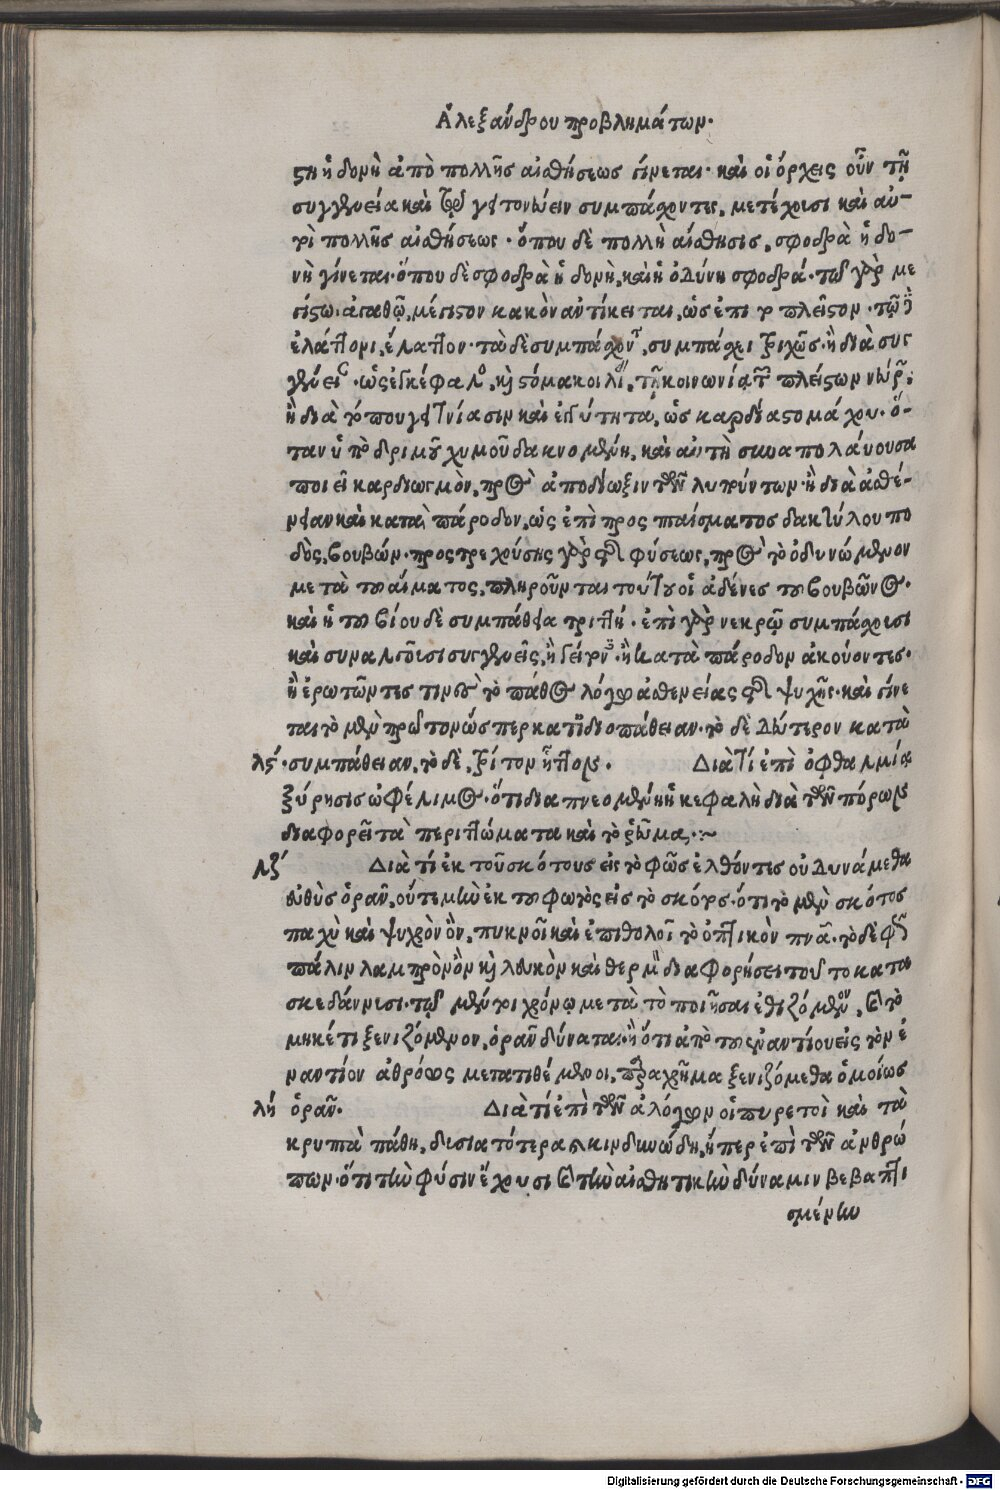 Ἀλεξάνδρου προβλημάτων.
ϛη ἡδονὴ ἀπὸ πολλῆς αἰσθήσεως γίνεται· καὶ οἱ ὄρχεις οὖν τῇ
συγγενείᾳ καὶ τῷ γειτονεύειν συμπάσχοντες, μετέχουσι καὶ αὐ-
τοὶ πολλῆς αἰσθήσεως. ὅπου δὲ πολλὴ αἴσθησις, σφοδρὰ ἡδο-
νὴ γίνεται· ὅπου δὲ σφοδρὰ ἡδονὴ, καὶ ἡ ὀδύνη σφοδρά. τῷ γὰρ με
γίστῳ ἀγαθῷ, μέγιστον κακὸν ἀντίκειται, ὡς ἐπὶ τὸ πλεῖστον. τῷ δὲ
ἐλάττονι, ἔλαττον. τὰ δὲ συμπάσχοντα, συμπάσχει τριχῶς. ἢ διὰ συγ
γένειαν. ὡς ἐγκέφαλος, καὶ στόμα κοιλίας, τῇ κοινωνίᾳ τῶν πλείστων νεύρων.
ἢ διὰ τόπου γειτνίασιν καὶ ἐγγύτητα, ὡς καρδία στομάχου. ὅ-
ταν ὑπὸ δριμέος χυμοῦ δακνομένη, καὶ αὐτὴ συναπολαύουσα
ποιεῖ καρδιωγμὸν, πρὸς ἀποδίωξιν τῶν λυπούντων. ἢ διὰ ἀσθέ-
νειαν καὶ κατὰ πάροδον, ὡς ἐπὶ προσπταίσματος δακτύλου πο
δὸς, βουβών. προστρεχούσης γὰρ τῆς φύσεως, πρὸς τὸ ὀδυνώμενον
μετὰ τοῦ αἵματος, πληροῦνται τούτου οἱ ἀδένες τοῦ βουβῶνος.
καὶ ἡ τοῦ βίου δὲ συμπάθεια τριττή. ἐπὶ γὰρ νεκρῷ συμπάσχουσι
καὶ συναλγοῦσι συγγενεῖς, ἢ γείτονες. ἢ κατὰ πάροδον ἀκούοντες.
ἢ ἐρωτῶντες τινὸς τὸ πάθος λόγῳ ἀσθενείας τῆς ψυχῆς. καὶ γίνε
ται τὸ μὲν πρῶτον ὥσπερ κατ' ἰδιοπάθειαν. τὸ δὲ δεύτερον κατὰ
λϛ´ συμπάθειαν, τὸ δὲ, τρίτον ἧττον. Διὰ τί ἐπὶ ὀφθαλμίας
ξύρησις ὠφέλιμος. ὅτι διαπνεομένη ἡ κεφαλὴ διὰ τῶν πόρων
διαφορεῖ τὰ περιττώματα καὶ τὸ ῥεῦμα.
λζ´ Διὰ τί ἐκ τοῦ σκότους εἰς τὸ φῶς ἐλθόντες οὐ δυνάμεθα
εὐθὺς ὁρᾶν, οὔτε μὴν ἐκ τοῦ φωτὸς εἰς τὸ σκότος. ὅτι τὸ μὲν σκότος
παχὺ καὶ ψυχρὸν ὂν, πυκνοῖ καὶ ἐπιθολοῖ τὸ ὀπτικὸν πνεῦμα. τὸ δὲ φῶς
πάλιν λαμπρὸν ὂν καὶ λευκὸν καὶ θερμὸν διαφορήσει τοῦτο κατα
σκεδάννυσι. τῷ μέντοι χρόνῳ μετὰ τὸ ποιῆσαι ἐθιζόμενον, καὶ τὸ
μηκέτι ξενιζόμενον, ὁρᾶν δύναται. ἢ ὅτι ἀπὸ τοῦ ἐναντίου εἰς τὸν ἐ
ναντίον ἀθρόως μετατιθέμενοι, παραχρῆμα ξενιζόμεθα ὁμοίως
λη´ ὁρᾶν. Διὰ τί ἐπὶ τῶν ἀλόγων οἱ πυρετοὶ καὶ τὰ
κρυπτὰ πάθη, δυσιατότερα καὶ κινδυνώδη, ἤπερ ἐπὶ τῶν ἀνθρώ
πων. ὅτι τὴν φύσιν ἔχουσι καὶ τὴν αἰσθητικὴν δύναμιν βεβαπτι
σμένην
Digitalisierung gefördert durch die Deutsche Forschungsgemeinschaft - DFG